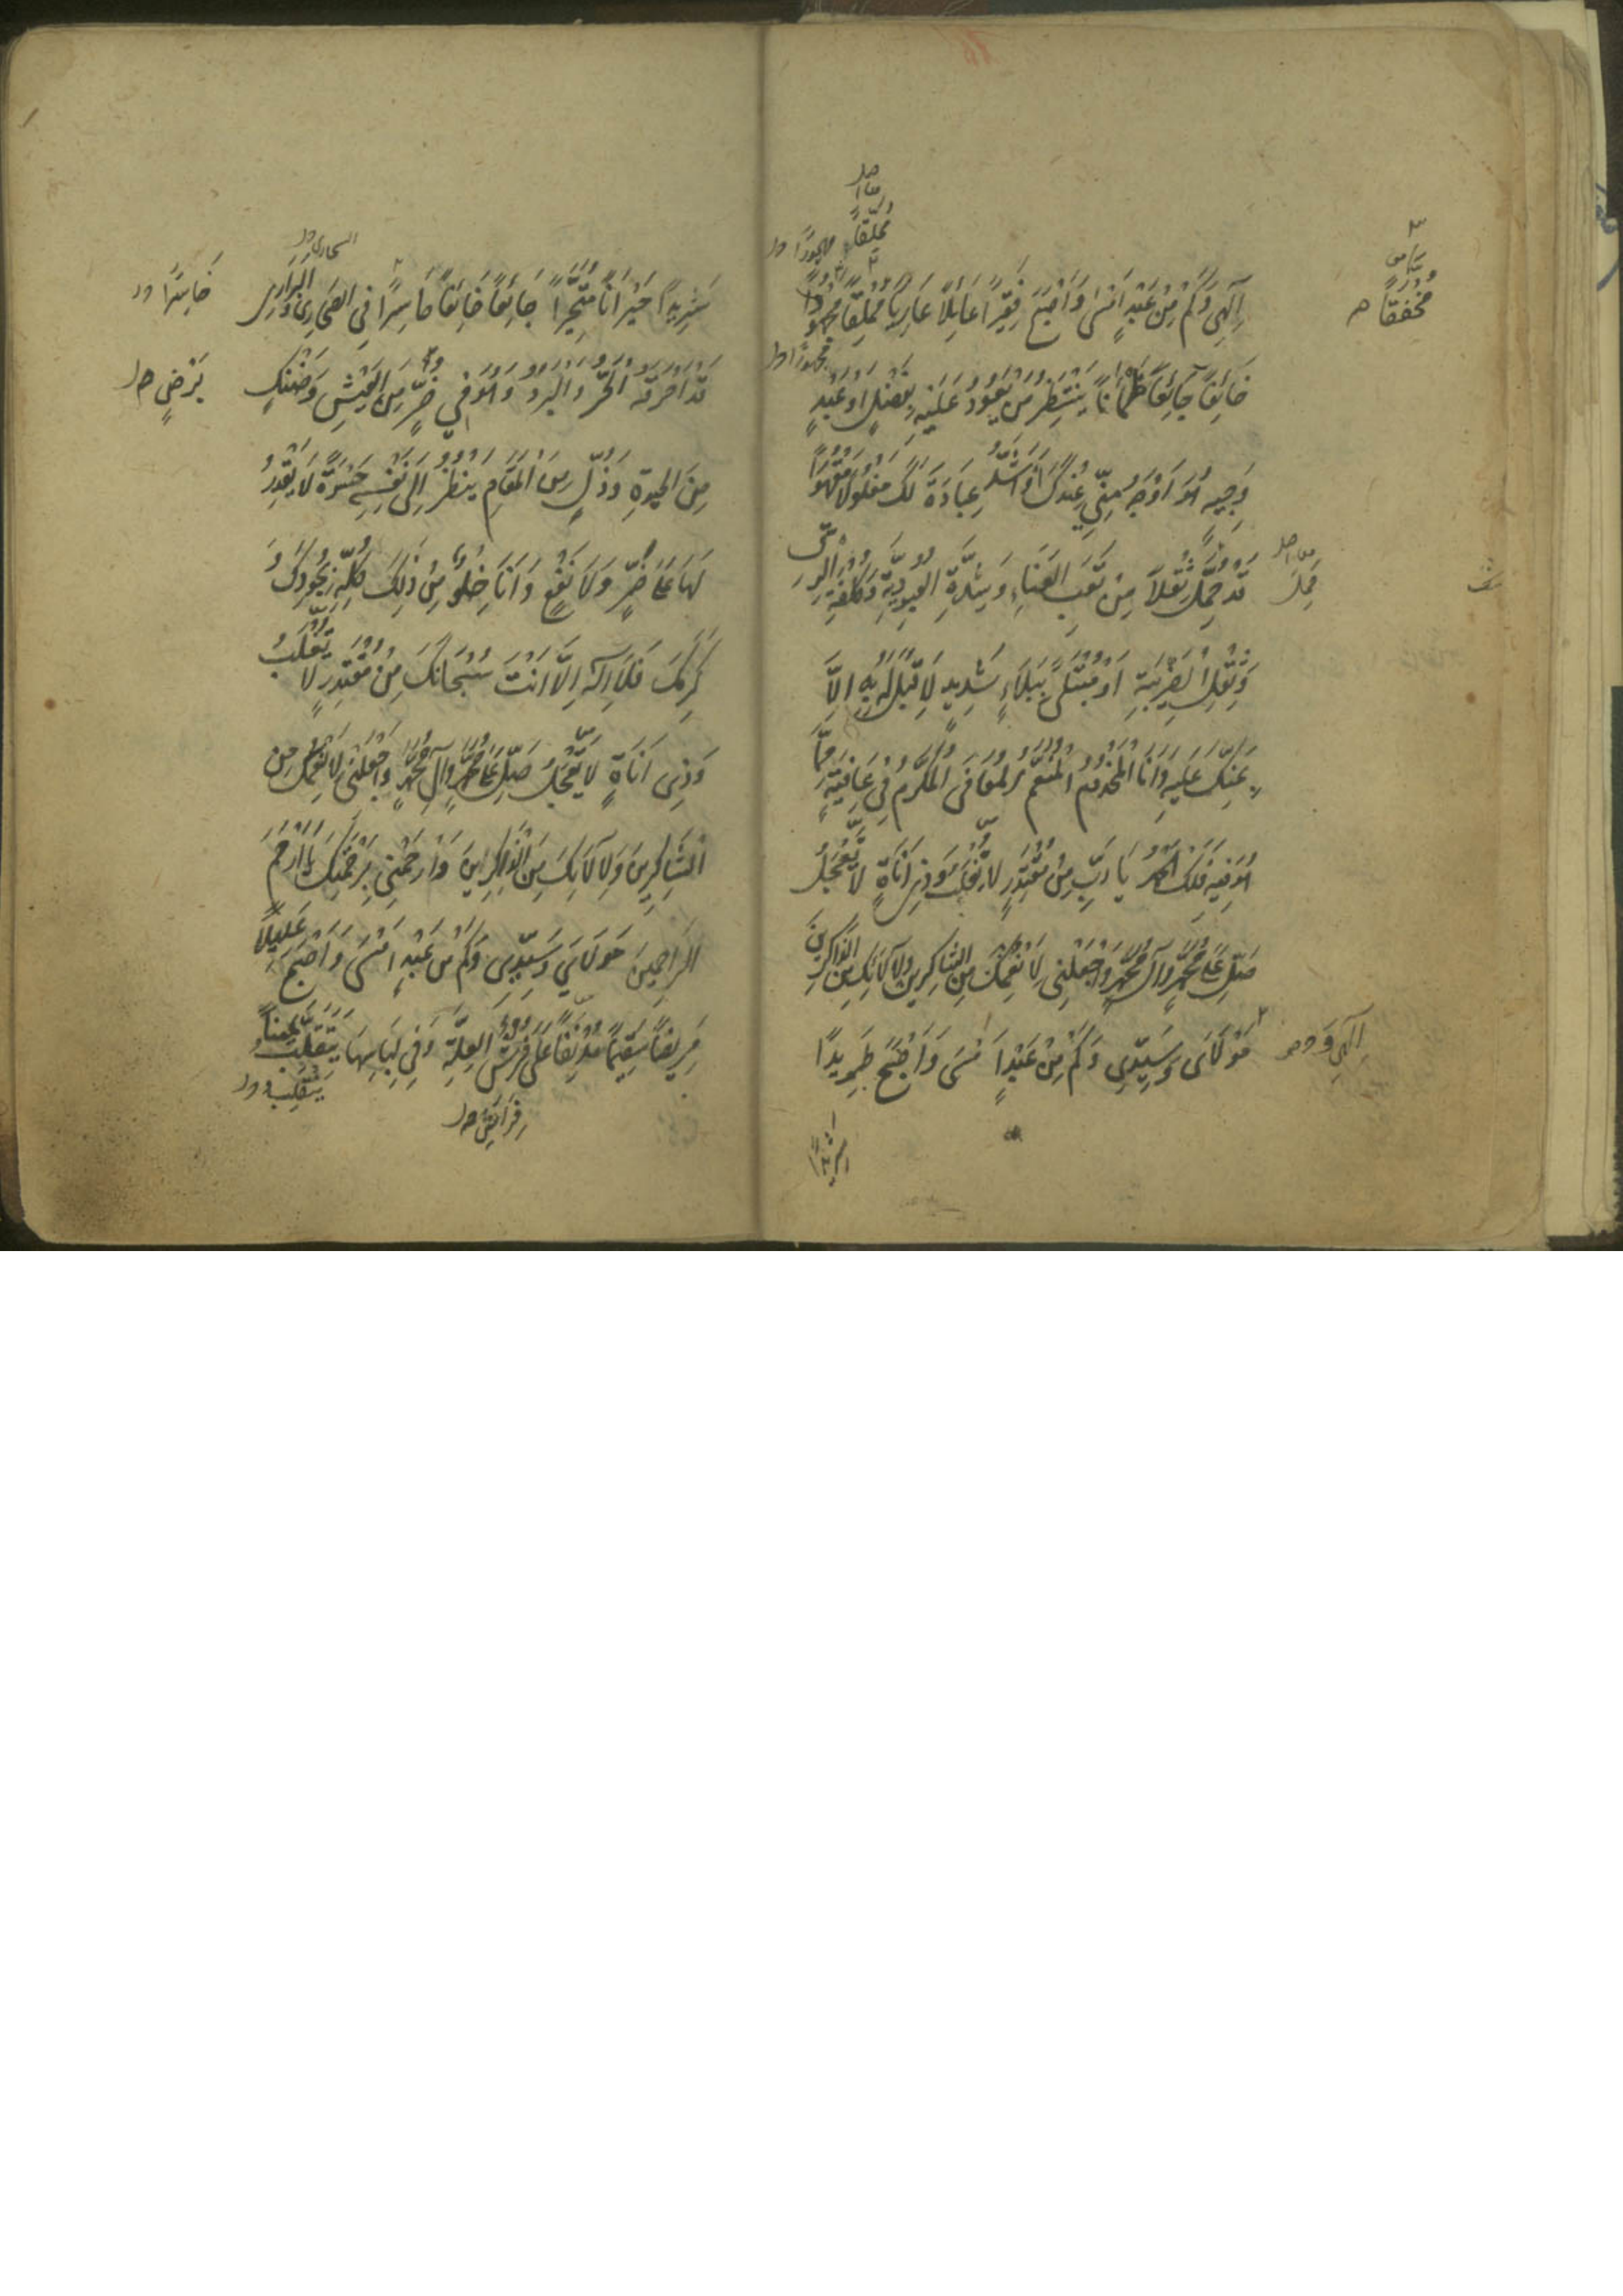 اِلٰهي وَكَمْ مِنْ عَبْدٍ اَمْسٰى وَاَصْبَحَ فَقِيرًا عَائِلًا عَارِيًا مُمْلِقًا
خَائِفًا جَائِعًا ظَمْاٰنًا يَنْتَظِرُ مَنْ يَعُودُ عَلَيْهِ بِفَضْلٍ اَوْ عَبْدٍ
وَجِيهٍ هُوَ اَوْجَهُ مِنِّي عِنْدَكَ وَاَشَدُّ عِبَادَةً لَكَ مَغْلُولًا مَقْهُورًا
قَدْ حُمِّلَ ثِقْلًا مِنْ تَعَبِ الْعَنَاءِ وَشِدَّةِ الْعُبُودِيَّةِ وَكُلْفَةِ الرِّقِّ
وَثِقْلِ الضَّرِيبَةِ اَوْ مُبْتَلًى بِبَلَاءٍ شَدِيدٍ لَا قِبَلَ لَهُ بِهِ اِلَّا
بِمَنِّكَ عَلَيْهِ وَاَنَا الْمَخْدُومُ الْمُنَعَّمُ الْمُعَافَى الْمُكَرَّمُ فِي عَافِيَةٍ مِمَّا
هُوَ فِيهِ فَلَكَ الْحَمْدُ يَا رَبِّ مِنْ مُقْتَدِرٍ لَا يُغْلَبُ وَذِي اَنَاةٍ لَا يَعْجَلُ
صَلِّ عَلٰى مُحَمَّدٍ وَآلِ مُحَمَّدٍ وَاجْعَلْنِي لِاَنْعُمِكَ مِنَ الشَّاكِرِينَ وَلِآلَائِكَ مِنَ الذَّاكِرِينَ
مَوْلَايَ وَسَيِّدِي وَكَمْ مِنْ عَبْدٍ اَمْسٰى وَاَصْبَحَ طَرِيدًا
شَرِيدًا
مُخْفِقًا
اِلٰهِي وَ
شَرِيدًا حَيْرَانًا مُتَحَيِّرًا جَائِعًا خَائِفًا حَاسِرًا فِي الصَّحَارِي وَالْبَرَارِي
قَدْ اَحْرَقَهُ الْحَرُّ وَالْبَرْدُ وَهُوَ فِي ضُرٍّ مِنَ الْعَيْشِ وَضَنْكٍ
مِنَ الْحَيٰوةِ وَذُلٍّ مِنَ الْمَقَامِ يَنْظُرُ اِلٰى نَفْسِهِ حَسْرَةً لَا يَقْدِرُ
لَهَا عَلٰى ضَرٍّ وَلَا نَفْعٍ وَاَنَا خِلْوٌ مِنْ ذٰلِكَ كُلِّهِ بِجُودِكَ وَ
كَرَمِكَ فَلَا اِلٰهَ اِلَّا اَنْتَ سُبْحَانَكَ مِنْ مُقْتَدِرٍ لَا يُغْلَبُ
وَذِي اَنَاةٍ لَا يَعْجَلُ صَلِّ عَلٰى مُحَمَّدٍ وَآلِ مُحَمَّدٍ وَاجْعَلْنِي لِاَنْعُمِكَ مِنَ
الشَّاكِرِينَ وَلِآلَائِكَ مِنَ الذَّاكِرِينَ وَارْحَمْنِي بِرَحْمَتِكَ يَا اَرْحَمَ
الرَّاحِمِينَ مَوْلَايَ وَسَيِّدِي وَكَمْ مِنْ عَبْدٍ اَمْسٰى وَاَصْبَحَ عَلِيلًا
مَرِيضًا سَقِيمًا مُدْنِفًا عَلٰى فُرُشِ الْعِلَّةِ وَفِي لِبَاسِهَا يَتَقَلَّبُ يَمِينًا وَ
خَاسِرًا
فِرَاشِ